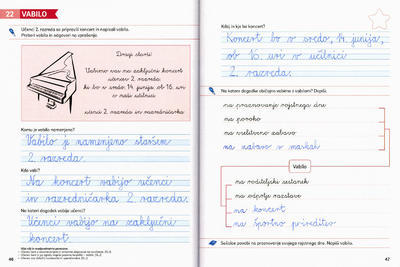 22 VABILO
Učenci 2. razreda so pripravili koncert in napisali vabilo.
Preberi vabilo in odgovori na vprašanja.
Dragi starši!
Vabimo vas na zaključni koncert,
ki bo v sredo, 14. junija, ob 16. uri
v naši učilnici.
učenci 2. razreda in razredničarka
Komu je vabilo namenjeno?
Vabilo je namenjeno staršem
2. razreda.
Kdo vabi?
Na koncert vabijo učenci
in razredničarka 2. razreda.
Na kateri dogodek vabijo učenci?
Učenci vabijo na zaključni
koncert.
46
Kdaj in kje bo koncert?
Koncert bo v sredo, 14. junija,
ob 16. uri v učilnici
2. razreda.
Na kateri dogodek običajno vabimo z vabilom? Dopiši.
na praznovanje rojstnega dne
na poroko
na novoletno zabavo
na zabavo v maskah
Vabilo
na roditeljski sestanek
na odprtje razstave
na koncert
na športno prireditev
Sošolce povabi na praznovanje svojega rojstnega dne. Napiši vabilo.
47